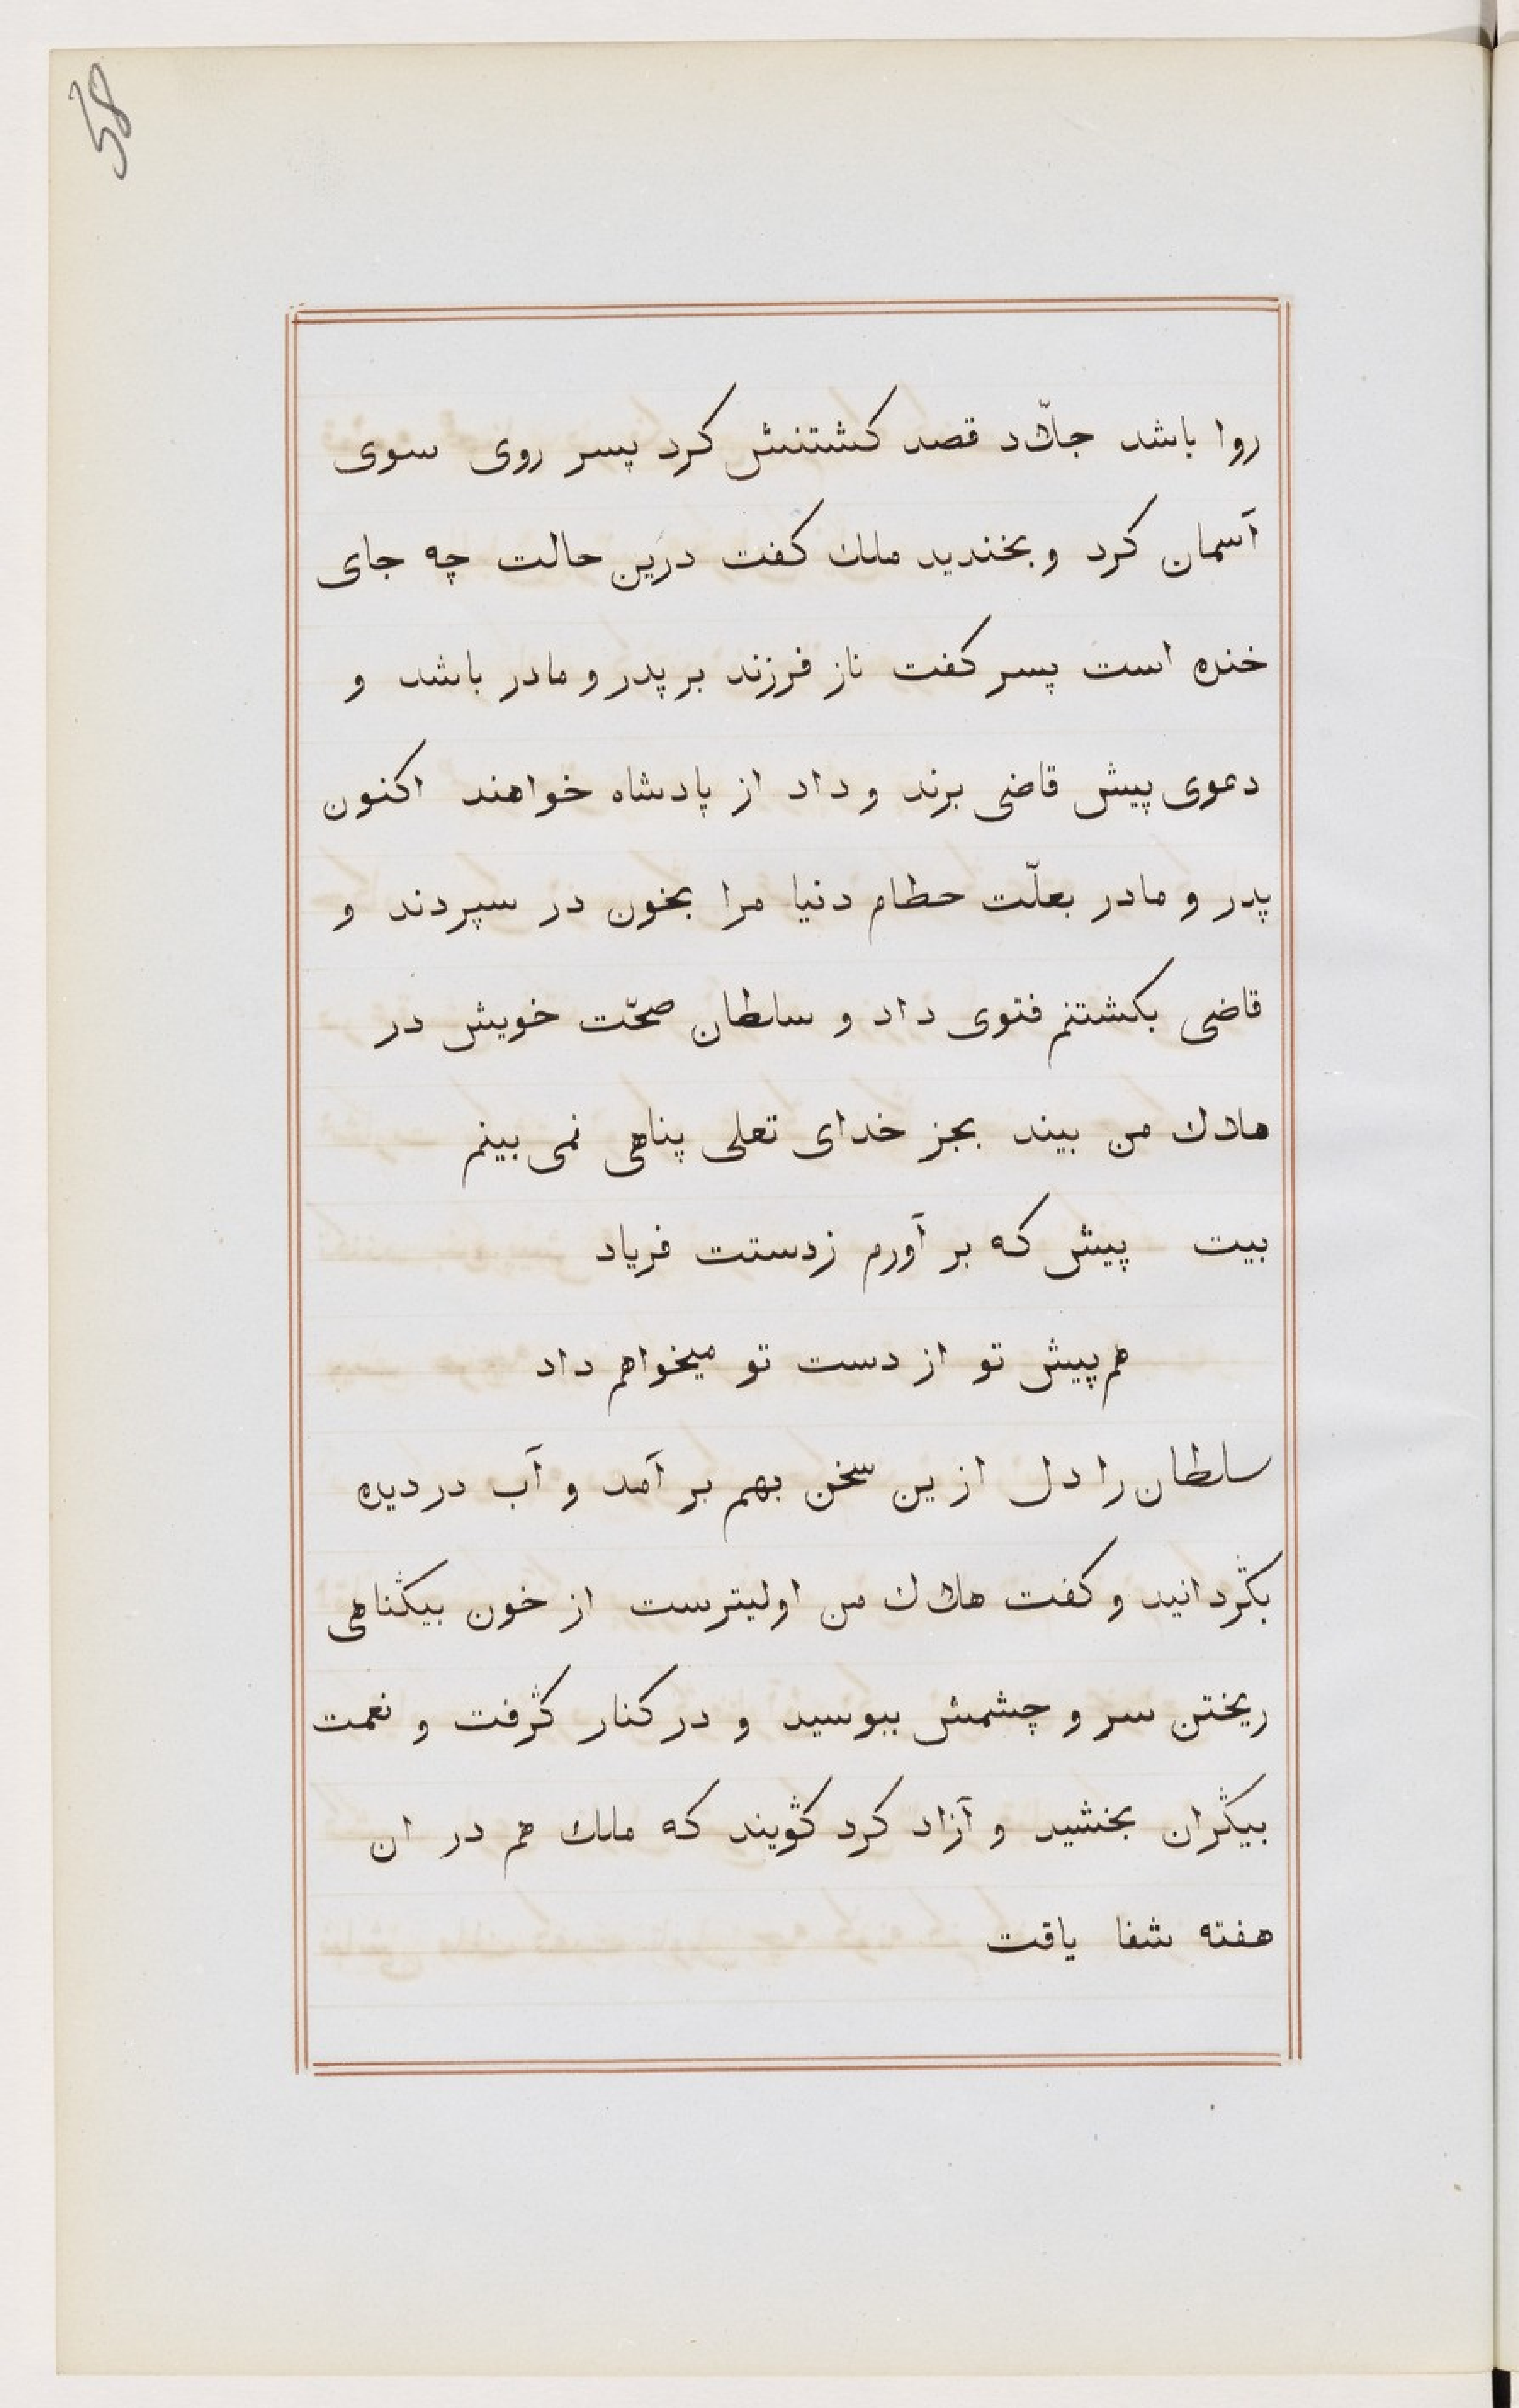 58
روا باشد جلّاد قصد کشتنش کرد پسر روی سوی
آسمان کرد و بخندید ملك کفت درین حالت چه جای
خنده است پسر کفت ناز فرزند بر پدر و مادر باشد و
دعوی پیش قاضی برند و داد از پادشاه خواهند اکنون
پدر و مادر بعلّت حطام دنیا مرا بخون در سپردند و
قاضی بکشتنم فتوی داد و سلطان صحّت خویش در
هلاك من بیند بجز خدای تعلی پناهی نمی بینم
بیت پیش که بر آورم زدستت فریاد
هم پیش تو از دست تو میخواهم داد
سلطان را دل ازین سخن بهم بر آمد و آب در دیده
بڭردانید و کفت هلاك من اولیترست از خون بیڭناهی
ریختن سر و چشمش ببوسید و در کنار ڭرفت و نعمت
بیڭران بخشید و آزاد کرد ڭویند که ملك هم در ان
هفته شفا یاقت